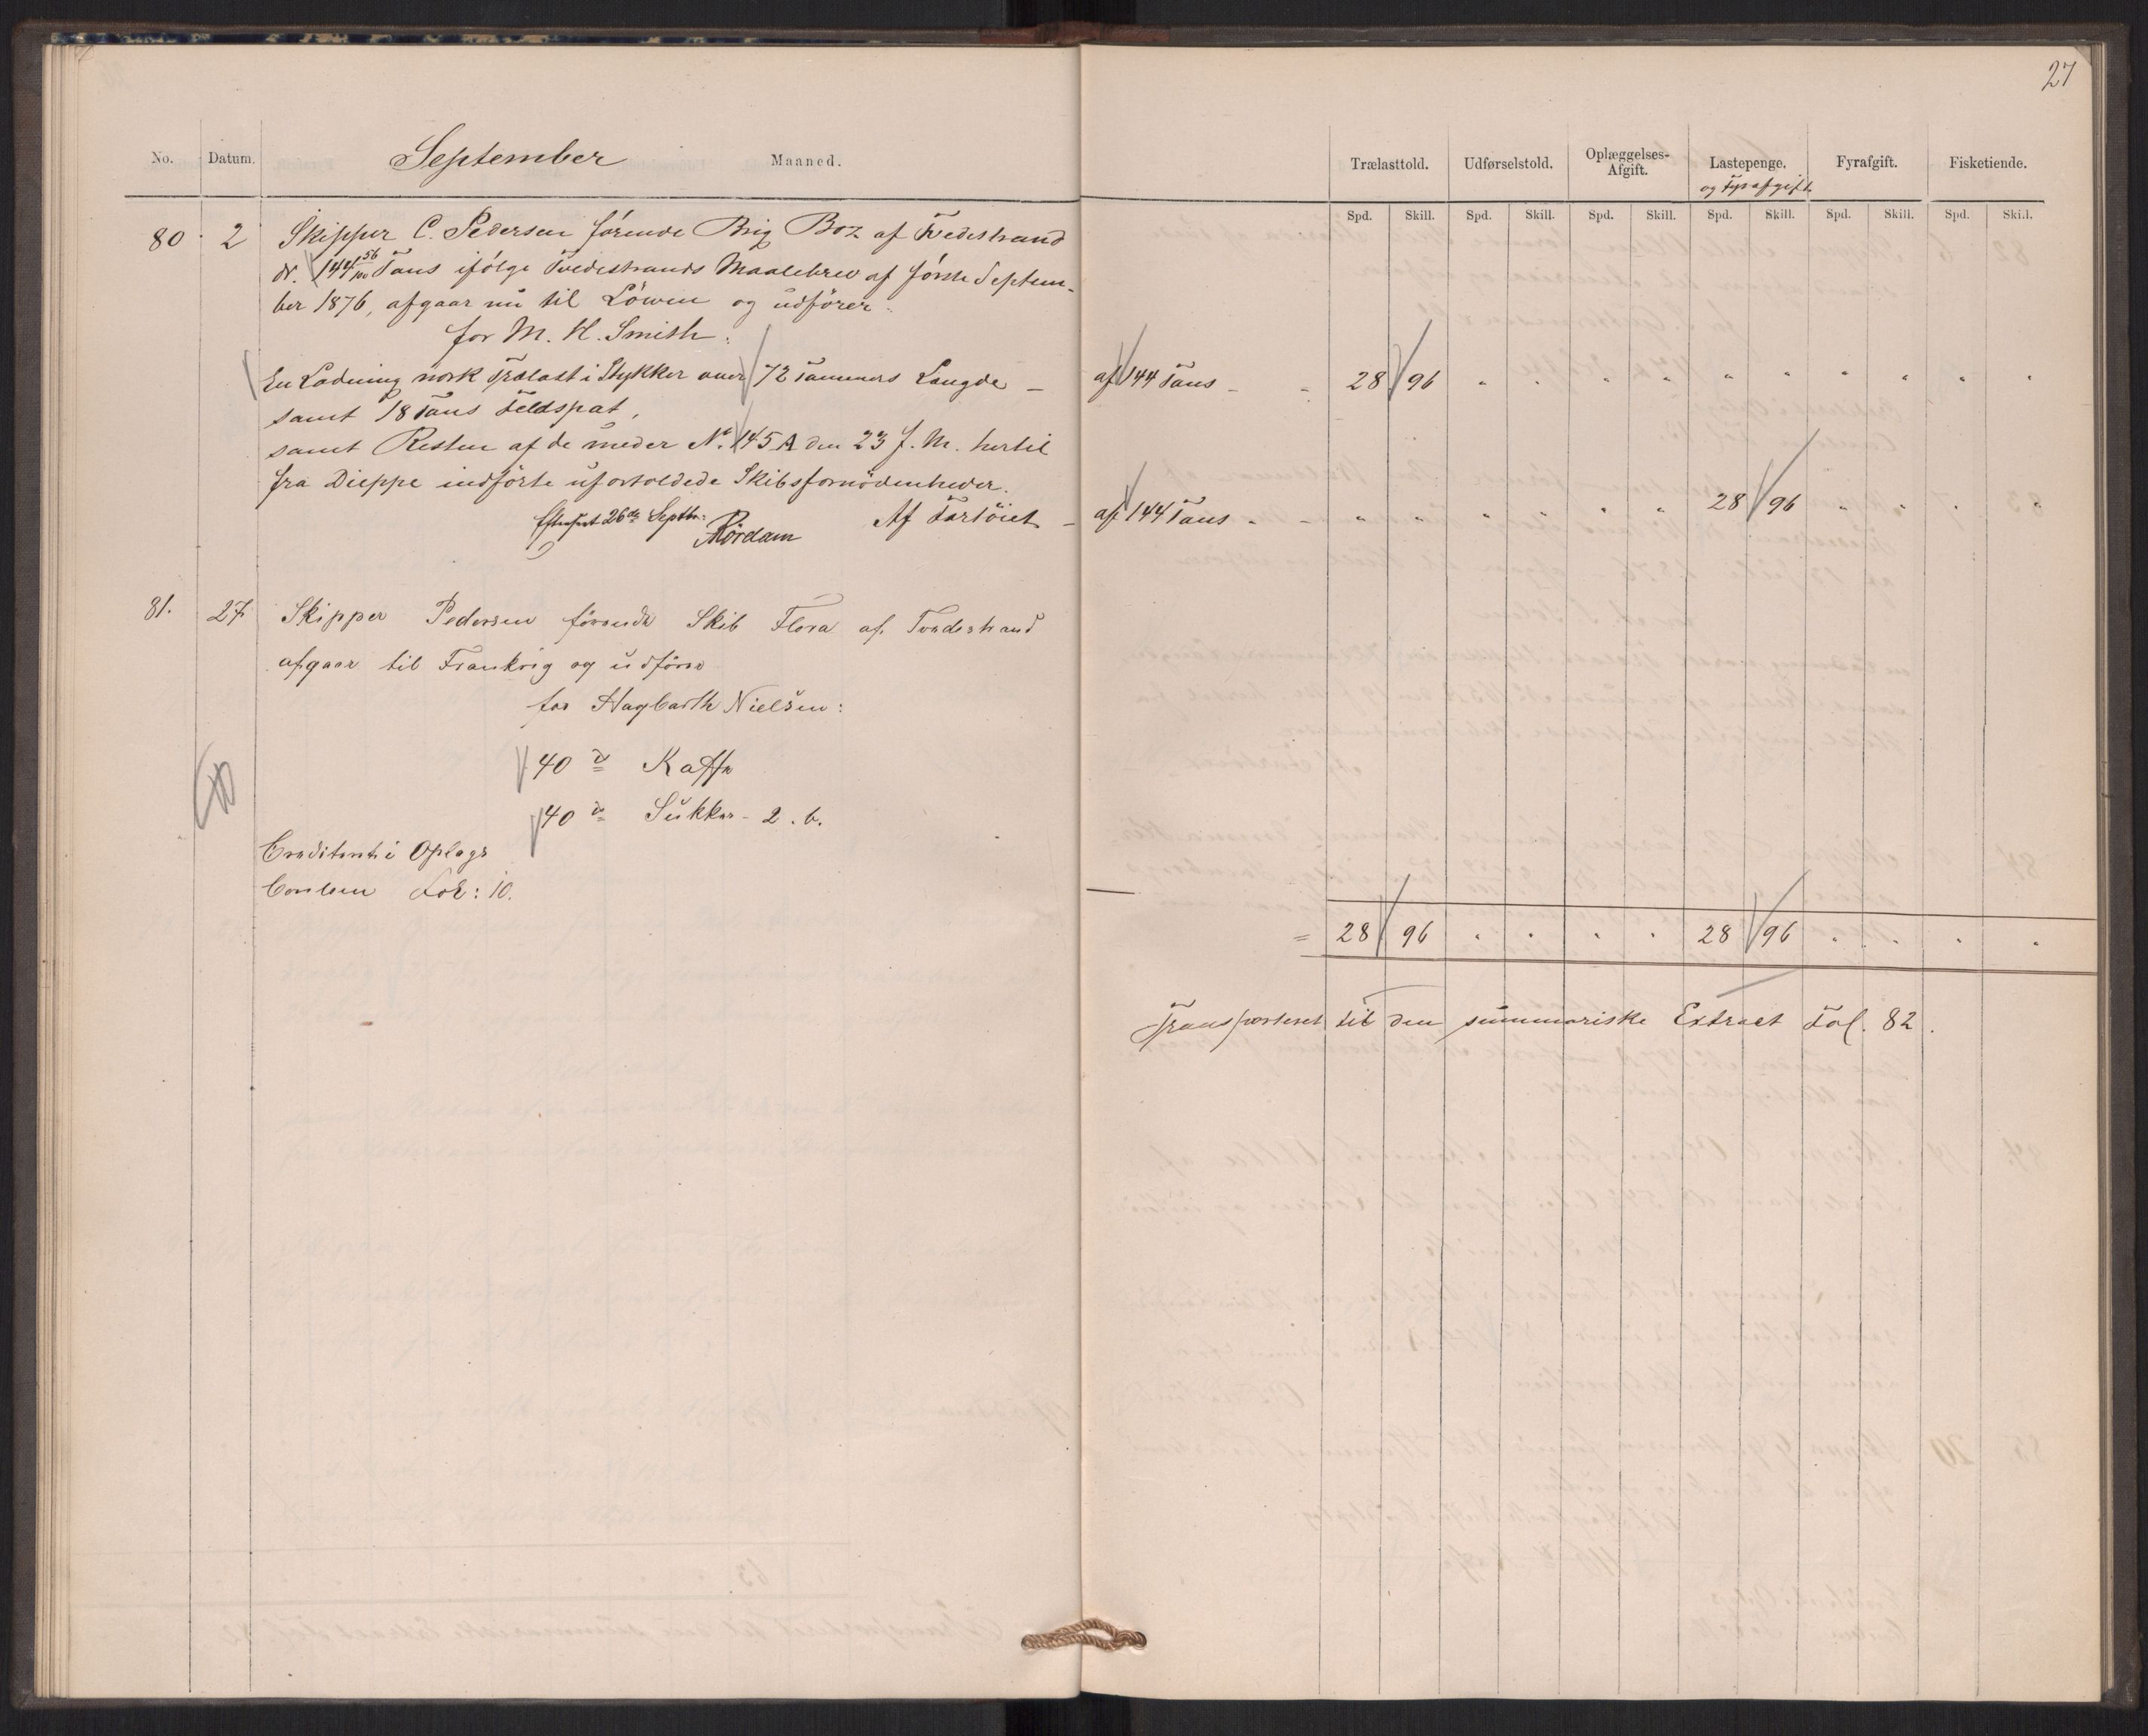 27
No. Datum. September Maaned.
Trælasttold. Udførselstold. Oplæggelses-Afgift. Lastepenge. og Fyrafgift. Fyrafgift. Fisketiende.
Spd. Skill. Spd. Skill. Spd. Skill. Spd. Skill. Spd. Skill. Spd. Skill.
80. 2 Skipper C. Pedersen förende Brig Boz af Tvedestrand
dr. 144 56/100 Tons ifölge Tvedestrands Maalebrev af förste Septem-
ber 1876, afgaar nu til Löwen og udförer:
for M. H. Smith:
En Ladning norsk Trælast i Stykker over 72 Tommers Længde – af 144 Tons - - 28 96 " " " " " " " " " "
samt 18 Tons Feldspat,
samt Resten af de under No. 145 A den 23 f. M. hertil
fra Dieppe indförte ufortoldede Skibsfornödenheder.
Efterseet 26de Septbr: Rördam
Af Fartöiet – af 144 Tons - - " " " " " " 28 96 " " " "
81. 27 Skipper Pedersen förende Skib Flora af Tvedestrand
afgaar til Frankrig og udförer
for Hagbarth Nielsen:
40 ℔ Kaffe
40 ℔ Sukker - 2. b.
Crediteret i Oplags
Contoen Fol: 10.
= 28 96 " " " " 28 96 " " " "
Transporteret til den summariske Extract Fol. 82.